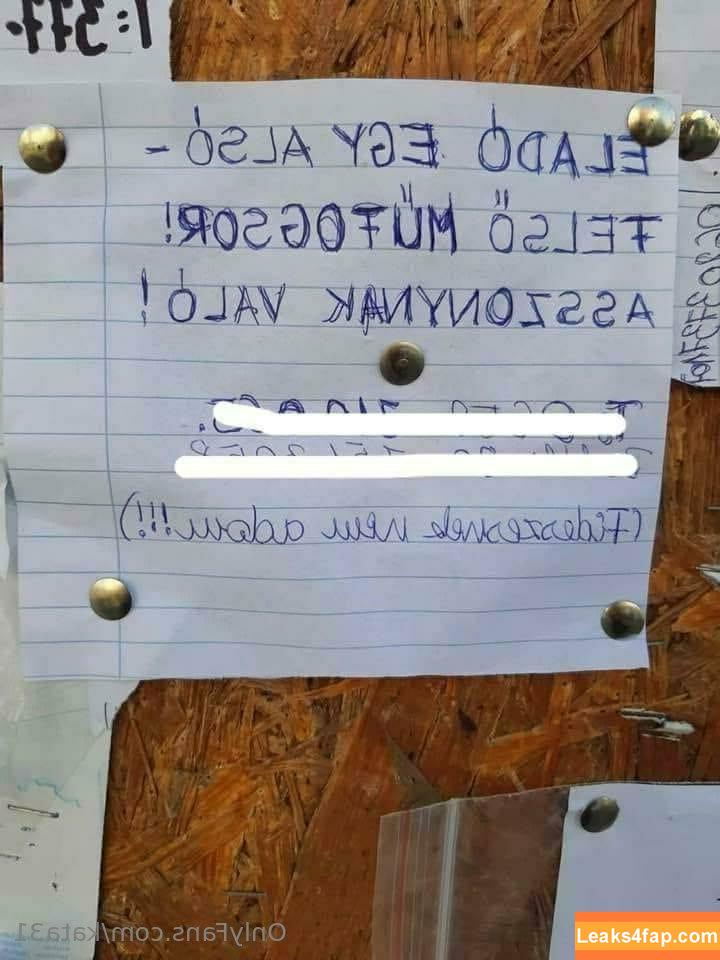 ELADÓ EGY ALSÓ -
FELSŐ MŰFOGSOR!
ASSZONYNAK VALÓ!
(Fideszesnek nem adom!!!)
OnlyFans.com/kata31
Leaks4fap.com